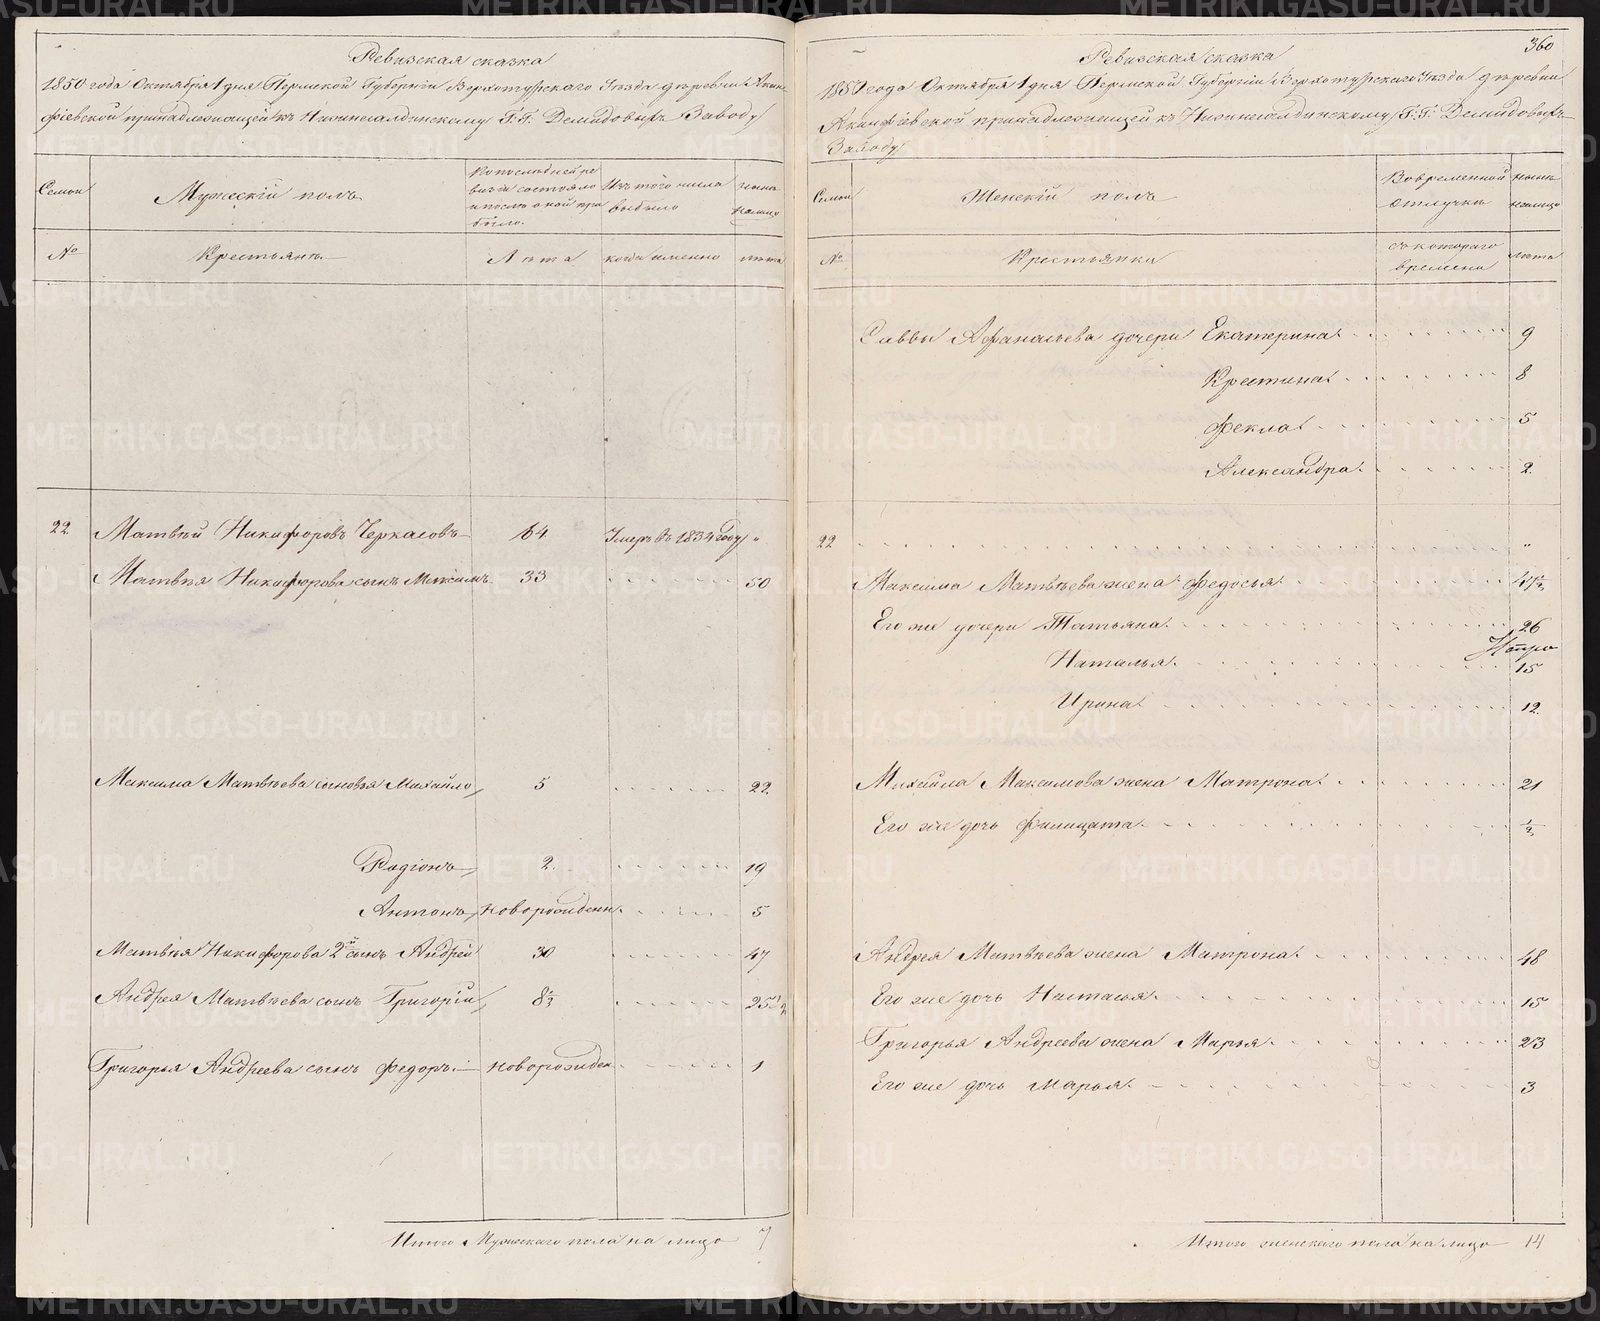 Ревизская сказка
1850 года Октября 1 дня Пермской Губернiи Верхотурскаго Уѣзда деревни Акин-
фiевской принадлежащей къ Нижнесалдинскому Г.Г. Демидовыхъ Заводу
Семьи
Мужескiй полъ
По послѣдней ре
визiи состояло
и послѣ оной при
было.
Изъ того числа
выбыло
нынѣ
на лицо
№
Крестьянъ
Лѣта
когда именно
лѣта
22
Матвѣй Никифоровъ Черкасовъ 64. Умеръ въ 1834 году "
Матвѣя Никифорова сынъ Максимъ 33 50
Максима Матвѣева сыновья Михайло, 5 22.
Родiонъ, 2. 19
Антонъ, новорожден. 5
Матвѣя Никифорова 2й сынъ Андрей 30 47
Андрея Матвѣева сынъ Григорiи, 8½ 25½
Григорья Андреева сынъ Федоръ. новорожден 1
Итого Мужескаго пола на лицо 7
360
Ревизская сказка
1850 года Октября 1 дня Пермской Губернiи Верхотурскаго Уѣзда деревни
Акинфiевской принадлежащей къ Нижнесалдинскому Г.Г. Демидовыхъ
Заводу
Семьи
Женскiй полъ
Во временной
отлучкѣ
нынѣ
на лицо
№
Крестьянки
съ котораго
времени
лѣта
Саввы Афанасьева дочери Екатерина. 9
Крестина. 8
Фекла. 5
Александра. 2.
22 "
Максима Матвѣева жена Федосья 47½
Его же дочери Татьяна. 26
Наталья. 15
Ирина. 12.
Михайла Максимова жена Матрона. 21
Его же дочь Филицата. ½
Андрея Матвѣева жена Матрона. 48
Его же дочь Настасья. 15
Григорья Андреева жена Марья. 23
Его же дочь Марья. 3
Итого женскаго пола на лицо 14
METRIKI.GASO-URAL.RU